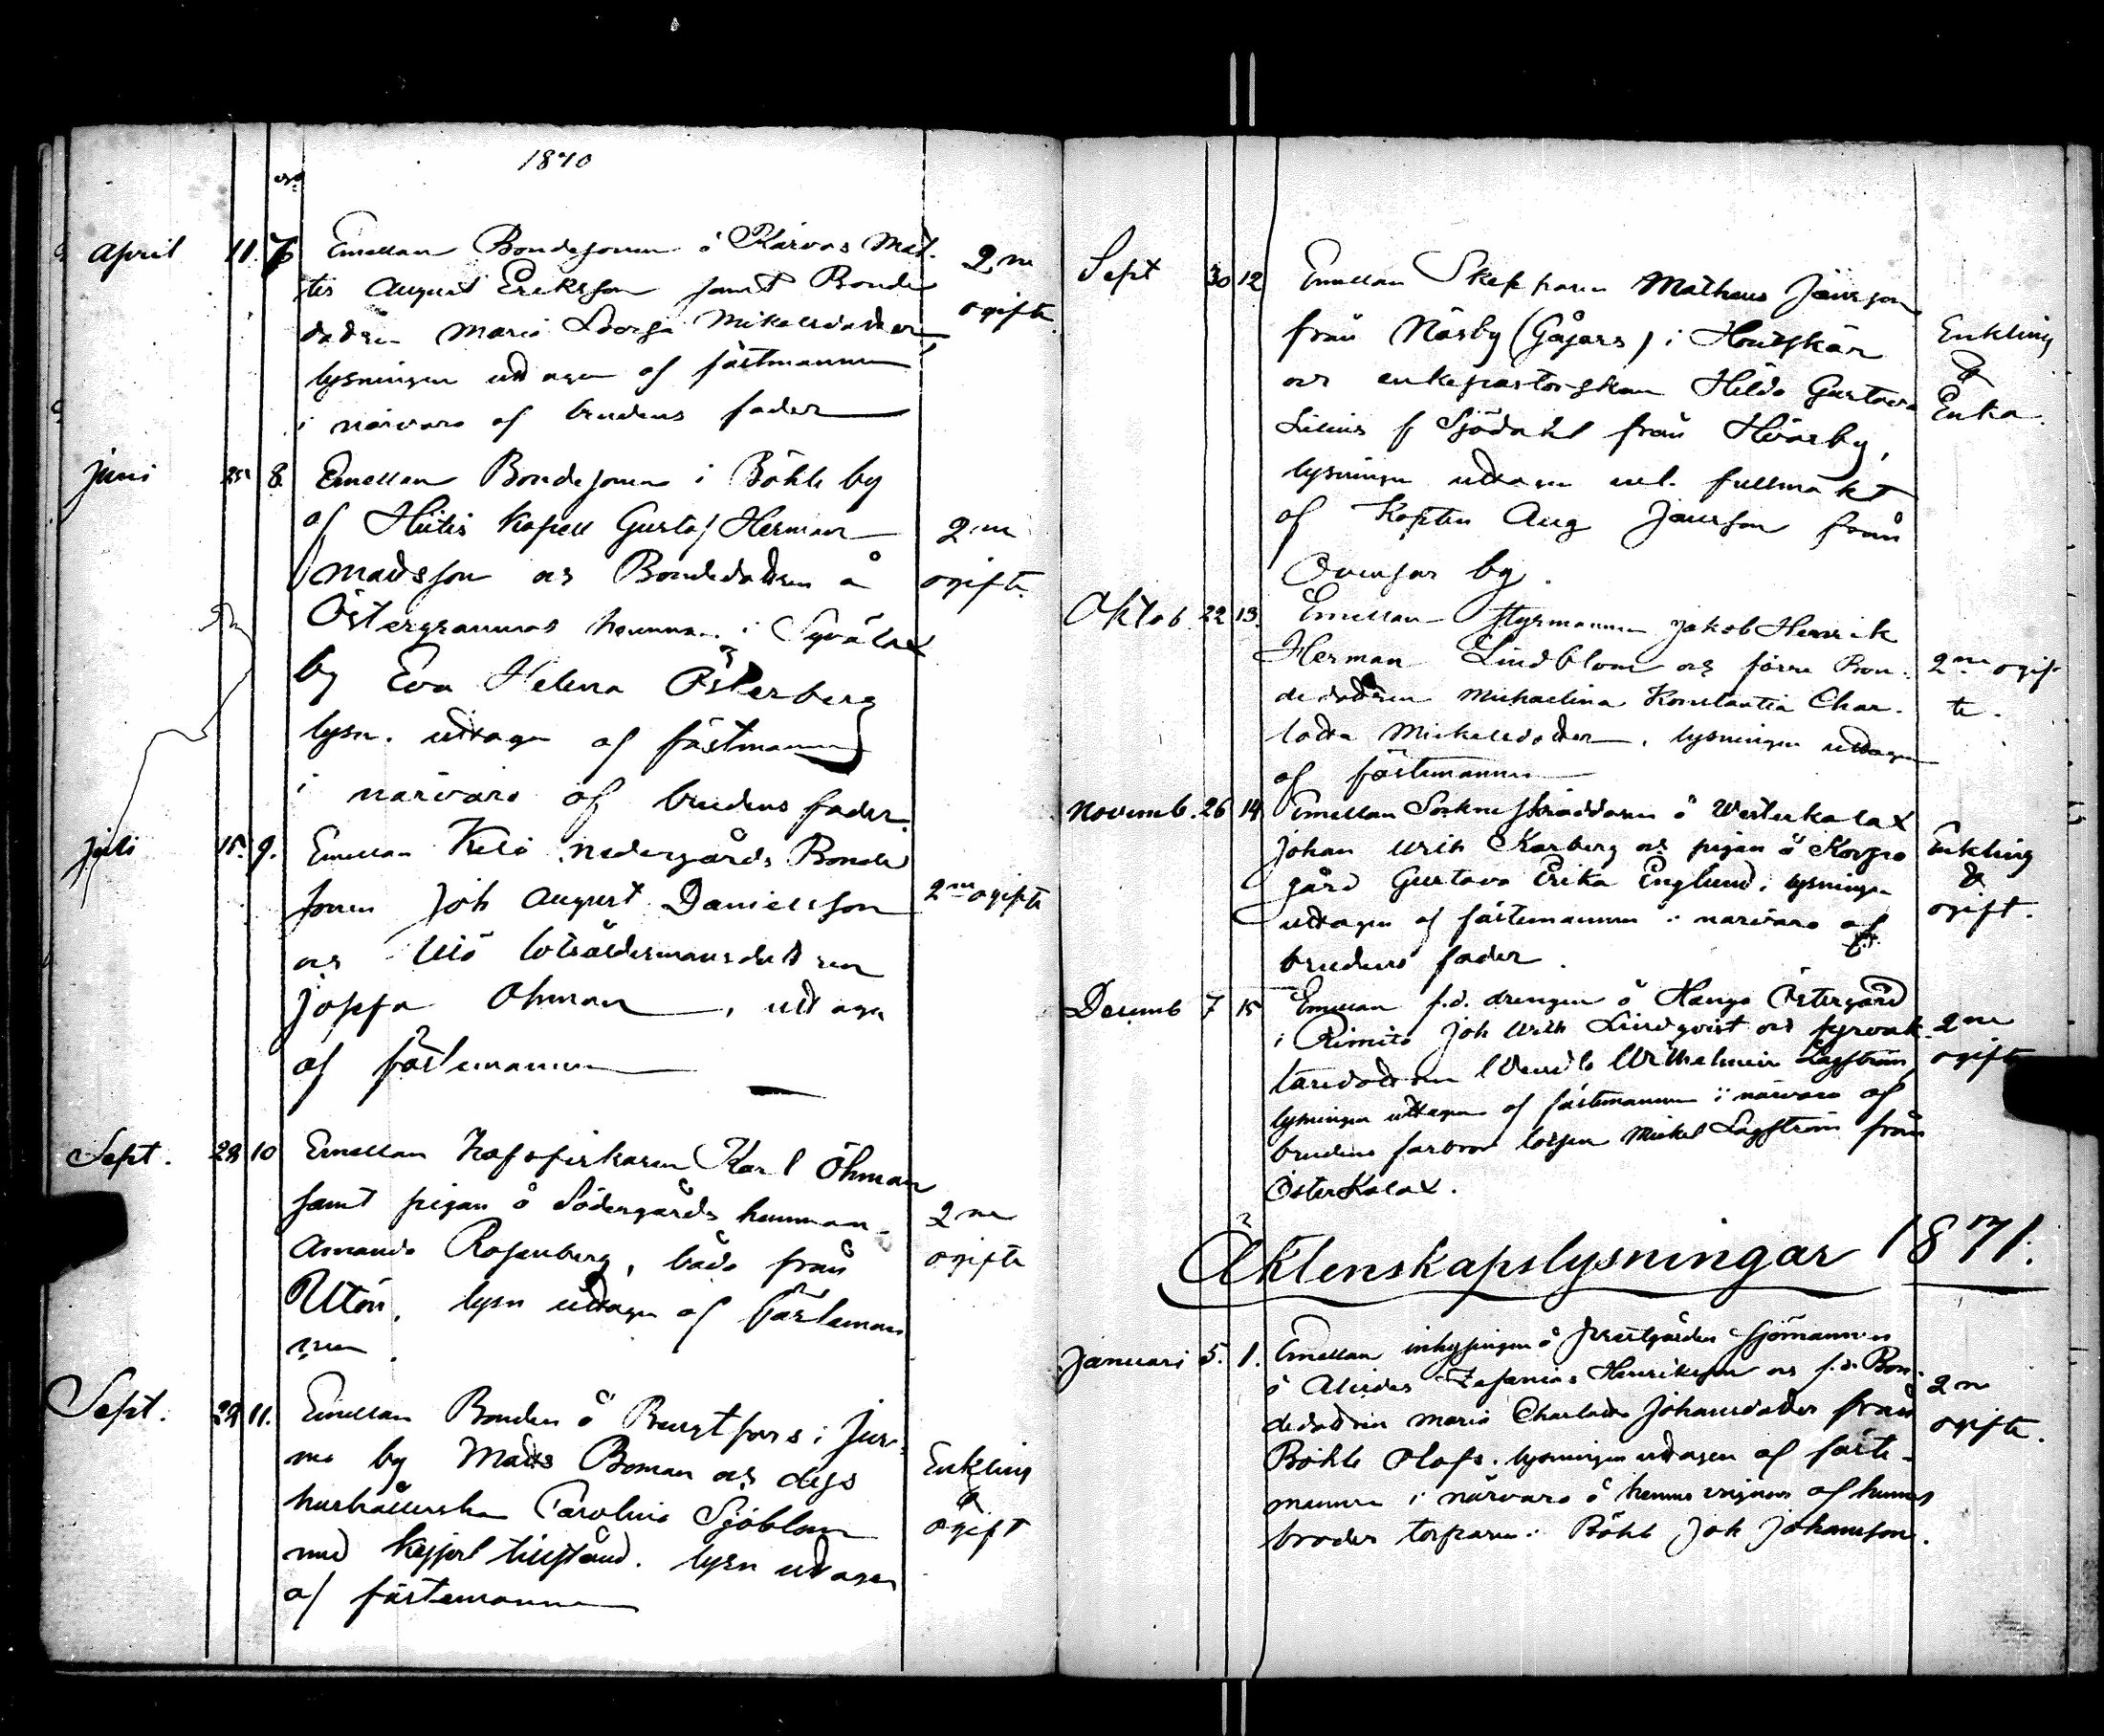 1870
April 11. 7 Emellan Bondesonen å Kärvas Mat-
tis August Eriksson samt Bonde
dottren Maria Lovisa Mikelsdotter 2ne ogifte
lysningen uttagen af fästmannen
i närvaro af brudens fader
Juni 25 8 Emellan Bondesonen i Böhle by
af Hitis Kapell Gustaf Herman 2ne
Madsson och Bondedottren å ogifte.
Östergrannas hemman i
by Eva Helena Österberg
lysn. uttagen af fästmannen
i närvaro af brudens fader.
Juli 15. 9. Emellan Nedergårds Bonde
sonen Joh August Danielsson 2ne ogifte
och Utö lotsåldermansdottren
Öhman, uttagen
af fästemannen
Sept. 10 Emellan Karl Öhman
samt pigan å Södergårds hemman 2ne
Amanda Rosenberg, båda från ogifte
Utön, lysn uttagen af fästeman
nen.
Sept. 11. Emellan Bonden å i Jur-
mo by Matts Boman och dess Enkling
hushållerska Carolina Sjöblom &
med tillstånd. lysn uttagen ogift
af fästemannen
Sept 30 12 Emellan Skepparen Matheus Jansson
från Näsby (Gåjars) i Houtskär Enkling
och enkepastorskan Hilda Gustava &
Lilius f Sjödahl från Hvarby, Enka.
lysningen uttagen enl. fullmakt
af Kapten Aug Jansson från
by.
Oktob. 22 13. Emellan styrmannen Jakob Henrik
Herman Lindblom och förre Bon- 2ne ogif
dedottren Michaelina Konstantia Char- te.
lotta Mickelsdotter, lysningen uttagen
af fästemannen
Novemb. 26 14 Emellan Sockneskräddaren å Westerkalax
Johan Wilh Karberg och pigan å Korpo Enkling
gård Gustava Erika Englund, lysningen &
uttagen af fästemannen i närvaro af ogift.
brudens fader.
Decemb 7 15 Emellan f.d. drengen å Hanga Östergård
i Rimito Joh Wilh Lindqvist och fyrvak- 2ne
taredottren Wendla Wilhelmina Lagström, ogifte
lysningen uttagen af fästemannen i närvaro af
brudens farbror lotsen Mickel Lagström från
Österkalax.
Äktenskapslysningar 1871.
Januari 5. 1. Emellan inhysingen å Prestgården sjömannen
Zefanias Henriksson och f.d. Bon- 2ne
dedottren Maria Charlotta Johansdotter från ogifte.
Böhle Olofs. lysningen uttagen af fäste-
mannen i närvaro å hennes vägnar af hennes
broder torparen i Böhle Joh Johansson.